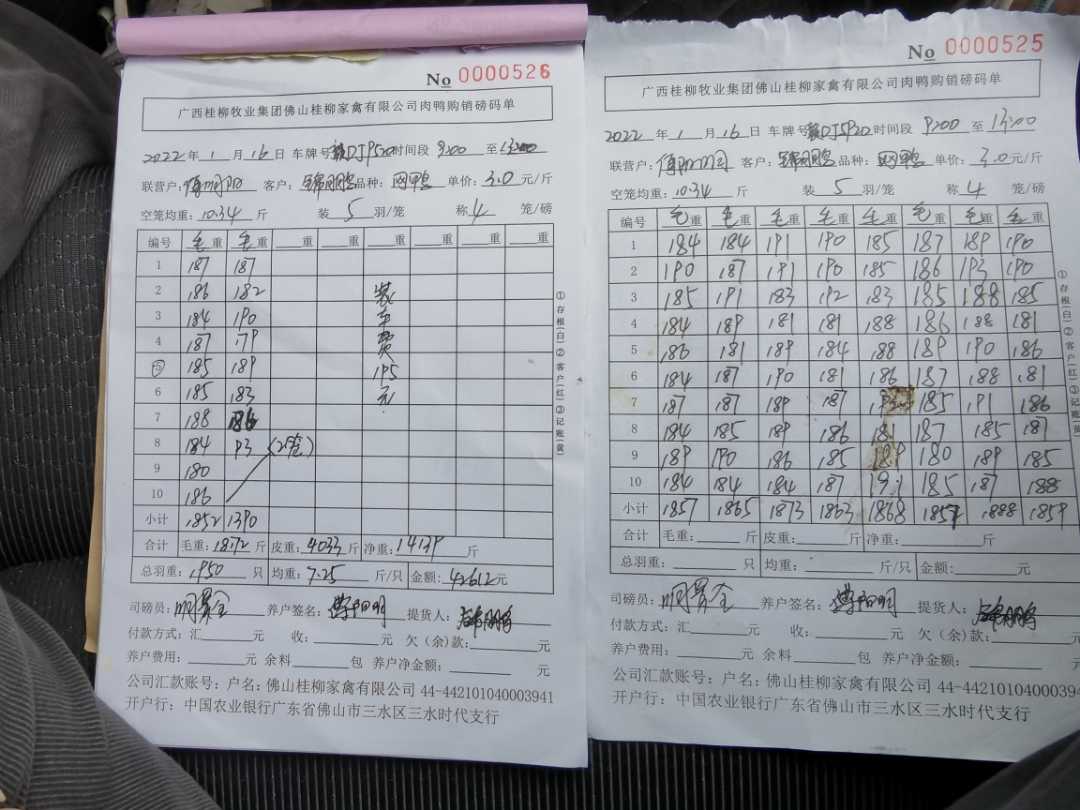 No 0000526
广西桂柳牧业集团佛山桂柳家禽有限公司肉鸭购销磅码单
2022 年 1 月 16 日 车牌号 DJ5P20 时间段 9:00 至 13:00
联营户: 客户: 品种: 单价: 3.0 元/斤
空笼均重: 10.34 斤 装 5 羽/笼 称 4 笼/磅
编号 毛重 毛重 重 重 重 重 重 重
1 187 187
2 186 182 装
3 184 190 车
4 187 179 费
5 185 189 195
6 185 183 元
7 188 186
8 184 93 (2笼)
9 180
10 186
小计 1852 1390
合计 毛重: 18172 斤 皮重: 4033 斤 净重: 14139 斤
总羽重: 1950 只 均重: 7.25 斤/只 金额: 42612 元
司磅员: 养户签名: 提货人:
付款方式: 汇 元 收: 元 欠(余)款: 元
养户费用: 元 余料 包 养户净金额: 元
公司汇款账号: 户名: 佛山桂柳家禽有限公司 44-442101040003941
开户行: 中国农业银行广东省佛山市三水区三水时代支行
①存根(白)②客户(红)③记账(黄)
No 0000525
广西桂柳牧业集团佛山桂柳家禽有限公司肉鸭购销磅码单
2022 年 1 月 16 日 车牌号 DJ5P20 时间段 9:00 至 13:00
联营户: 客户: 品种: 单价: 3.0 元/斤
空笼均重: 10.34 斤 装 5 羽/笼 称 4 笼/磅
编号 毛重 毛重 毛重 毛重 毛重 毛重 毛重 毛重
1 184 184 191 190 185 187 189 190
2 190 187 191 190 185 186 193 190
3 185 191 183 192 183 185 188 185
4 184 189 181 181 188 186 188 181
5 186 181 189 184 188 189 190 186
6 184 187 190 181 186 187 188 181
7 187 187 189 187 193 185 191 186
8 184 185 189 186 181 187 185 187
9 189 190 186 185 189 180 189 185
10 184 184 184 187 191 185 187 188
小计 1857 1865 1873 1863 1868 1857 1888 1859
合计 毛重: 斤 皮重: 斤 净重: 斤
总羽重: 只 均重: 斤/只 金额: 元
司磅员: 养户签名: 提货人:
付款方式: 汇 元 收: 元 欠(余)款:
养户费用: 元 余料 包 养户净金额: 元
公司汇款账号: 户名: 佛山桂柳家禽有限公司 44-44210104000394
开户行: 中国农业银行广东省佛山市三水区三水时代支行
①存根(白)②客户(红)③记账(黄)